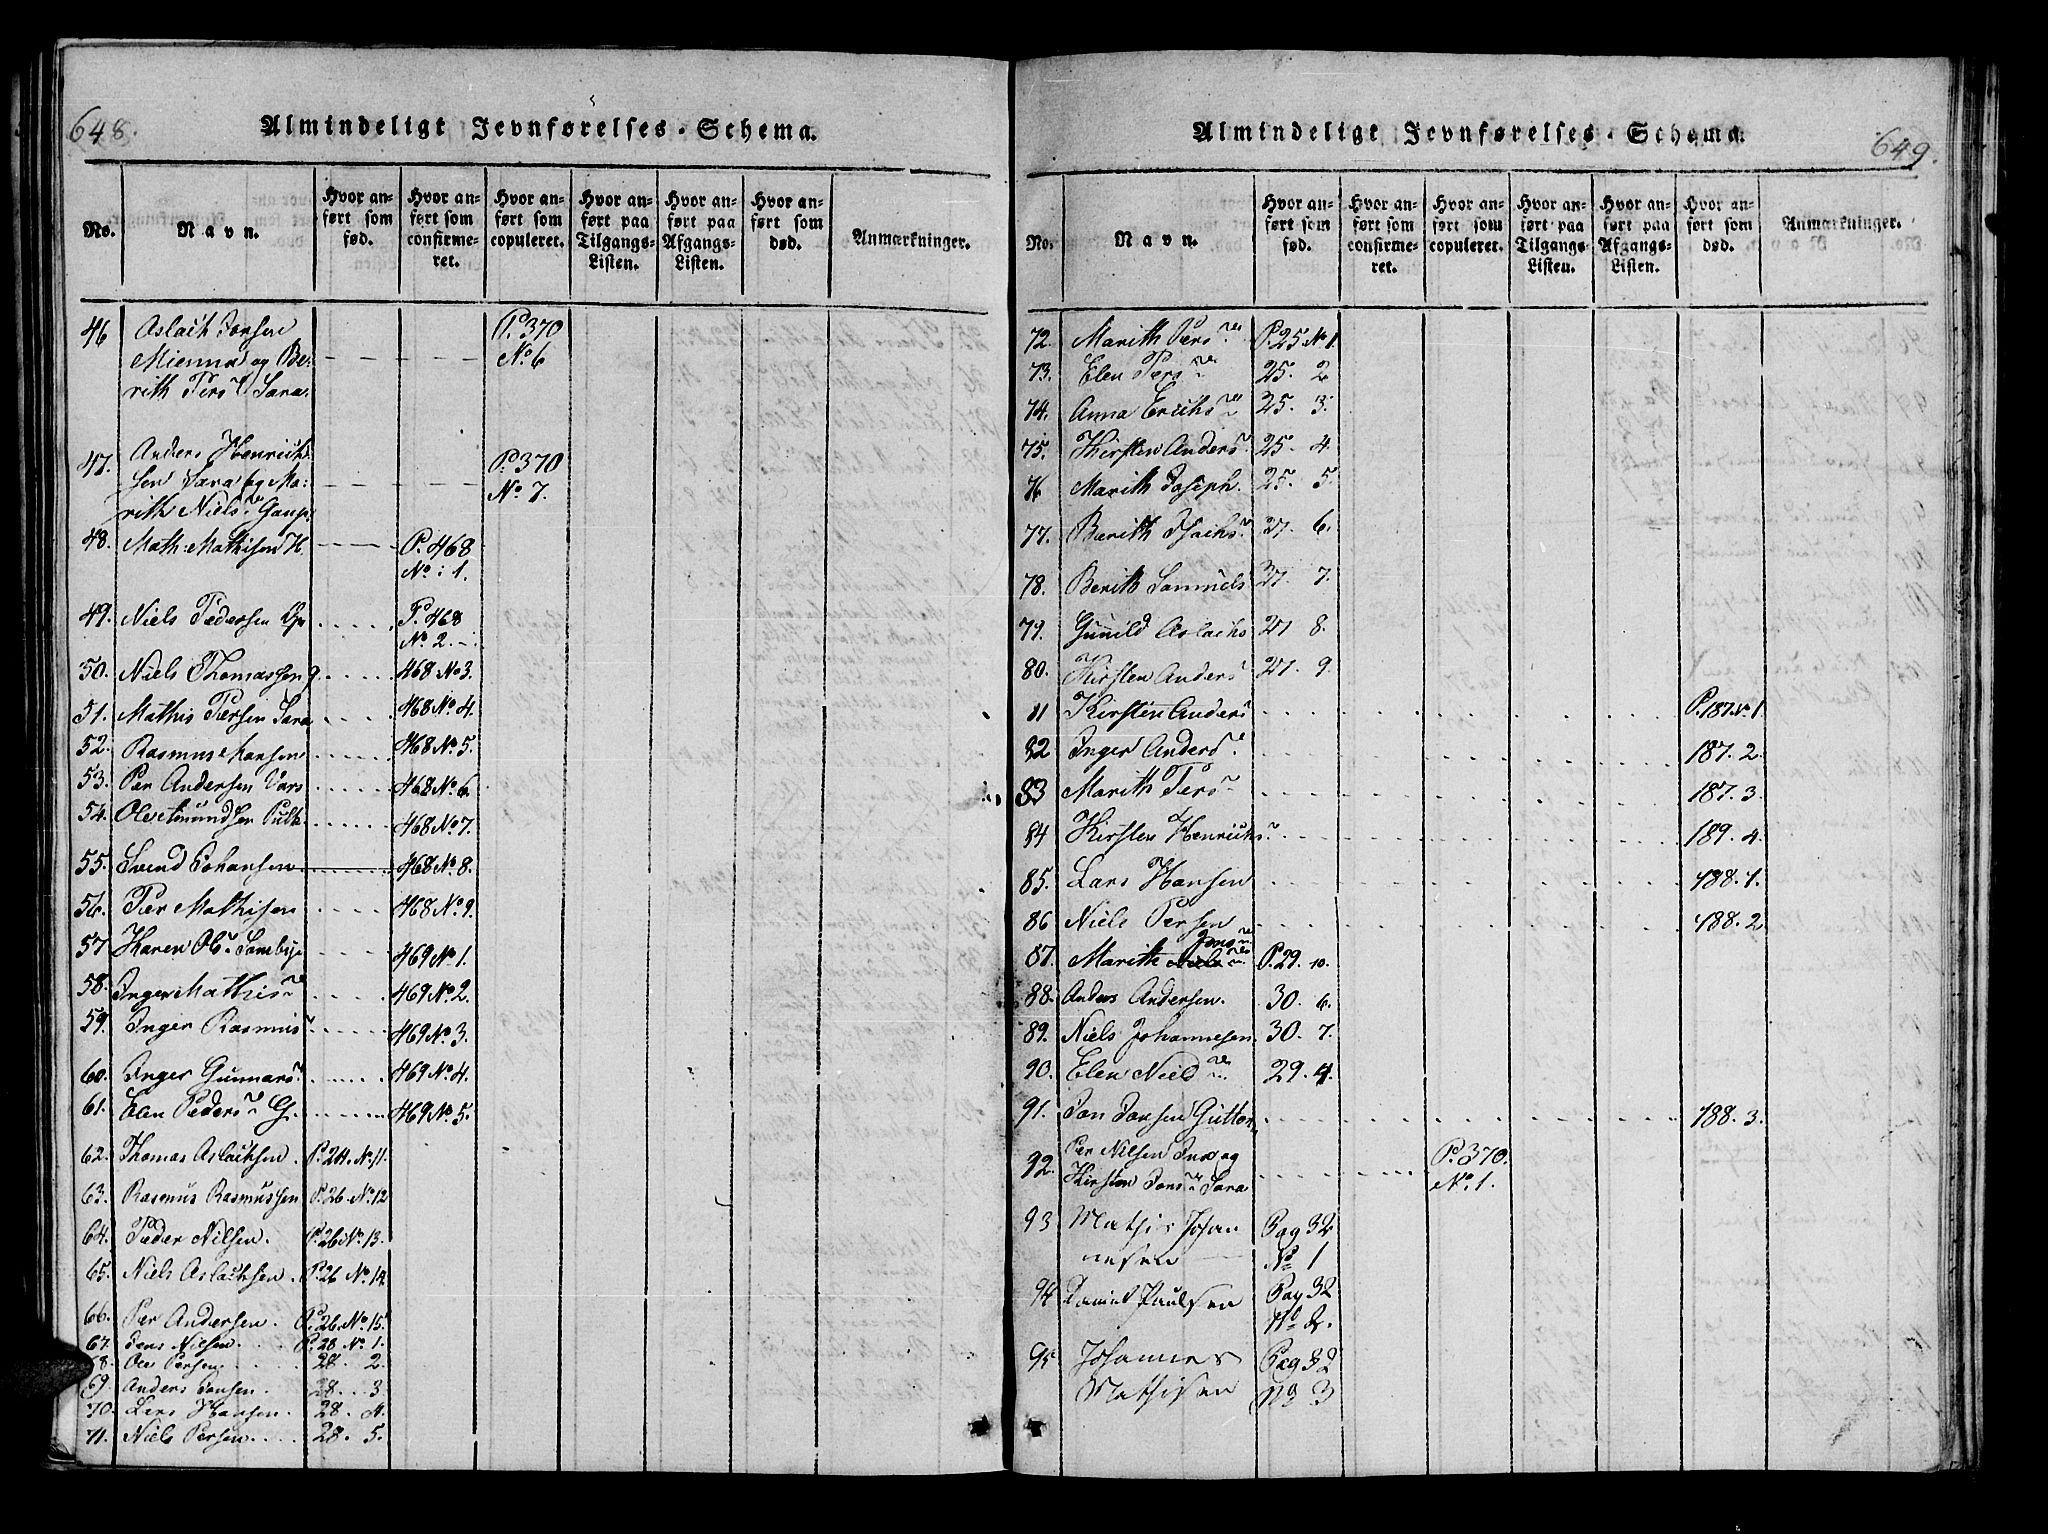 648.
Almindeligt Jevnførelses-Schema.
No.
Navn.
Hvor anført som fød.
Hvor anført som confirmeret.
Hvor anført som copuleret.
Hvor anført paa Tilgangs-Listen.
Hvor anført paa Afgangs-Listen.
Hvor anført som død.
Anmarkninger.
46 Aslach Jonsen P. 370
Mienna og Be- No. 6
rith Pers Sara
47. Anders Henrich- P. 370
sen Sara og Ma- No. 7.
rith Niels Gaup
48. Math: Mathisen H. P. 468
No: 1.
49. Niels Pedersen P. 468
No. 2.
50. Niels Thomassen 468 No 3.
51. Mathis Persen Sara 468 No. 4.
52. Rasmus Hansen 468 No. 5.
53. Per Andersen Vars 468 No. 6.
54. Ole Amundsen 468 No. 7.
55. Svend Johansen 468 No. 8.
56. Per Mathisen 468 No. 9.
57 Karen Ols 469 No 1.
58. Inger Mathis 469 No 2.
59. Inger Rasmus 469 No 3.
60. Inger Gunnars 469 No 4.
61. Elen Peders G. 469 No 5.
62. Thomas Aslachsen. P. 24. No. 11.
63. Rasmus Rasmussen P. 26. No. 12
64. Peder Nilsen. P. 26 No. 13.
65. Niels Aslachsen. P. 26 No. 14
66. Per Andersen. P. 26. No. 15.
67. Jens Nilsen. P. 28 No. 1.
68. Ole Persen. 28. 2.
69. Anders Jonsen. 28. 3.
70. Lars Hansen. 28. 4.
71. Niels Persen. 28. 5.
Almindeligt Jevnførelses-Schema.
649.
No.
Navn.
Hvor anført som fød.
Hvor anført som confirmeret.
Hvor anført som copuleret.
Hvor anført paa Tilgangs-Listen.
Hvor anført paa Afgangs-Listen.
Hvor anført som død.
Anmarkninger.
72. Marith Pers P. 25 No 1.
73. Elen Pers 25. 2
74. Anna Erichs 25. 3.
75. Kirsten Anders 25. 4
76 Marith Joseph. 25. 5.
77. Berith Isachs 27. 6.
78. Berith Samuels 27. 7.
79. Gunild Aslachs 27 8.
80. Kirsten Anders 27. 9.
81 Kirsten Anders P. 187. No. 1.
82 Inger Anders 187. 2.
83 Marith Pers 187. 3.
84 Kirsten Henrichs 189. 4.
85. Lars Hansen 188. 1.
86 Niels Persen 188. 2.
87. Marith Jons P. 29. 10.
88. Anders Andersen. 30. 6.
89. Niels Johannesen 30. 7.
90. Elen Niels 29. 4.
91. Jon Jonsen Guttorm 188. 3.
92. Per Nilsen og P. 370.
Kirsten Jons Sara No. 1.
93 Mathis Johan Pag 32
nesen No 1
94 Daniel Paulsen Pag 32
No 2.
95 Johannes Pag 32
Mathisen No 3